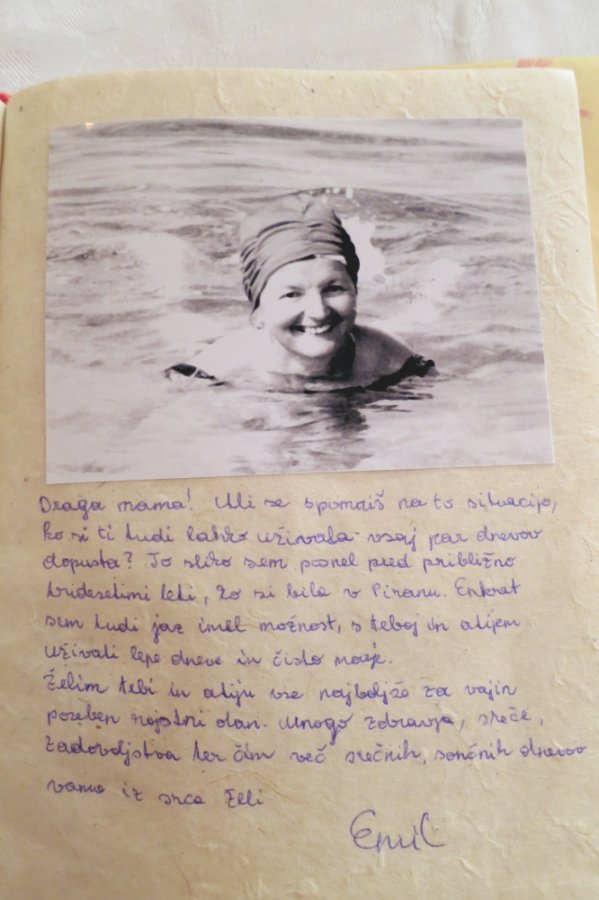 Draga mama! Ali se spomniš na to situacijo,
ko si ti tudi lahko uživala vsaj par dnevov
dopusta? To sliko sem posnel pred približno
tridesetimi leti, ko si bila v Piranu. Enkrat
sem tudi jaz imel možnost, s teboj in atijem
uživati lepe dneve in čisto morje.
Želim tebi in atiju vse najboljše za vajin
poseben rojstni dan. Mnogo zdravja, sreče,
zadovoljstva ter čim več srečnih, sončnih dnevov
vama iz srca želi
Emil